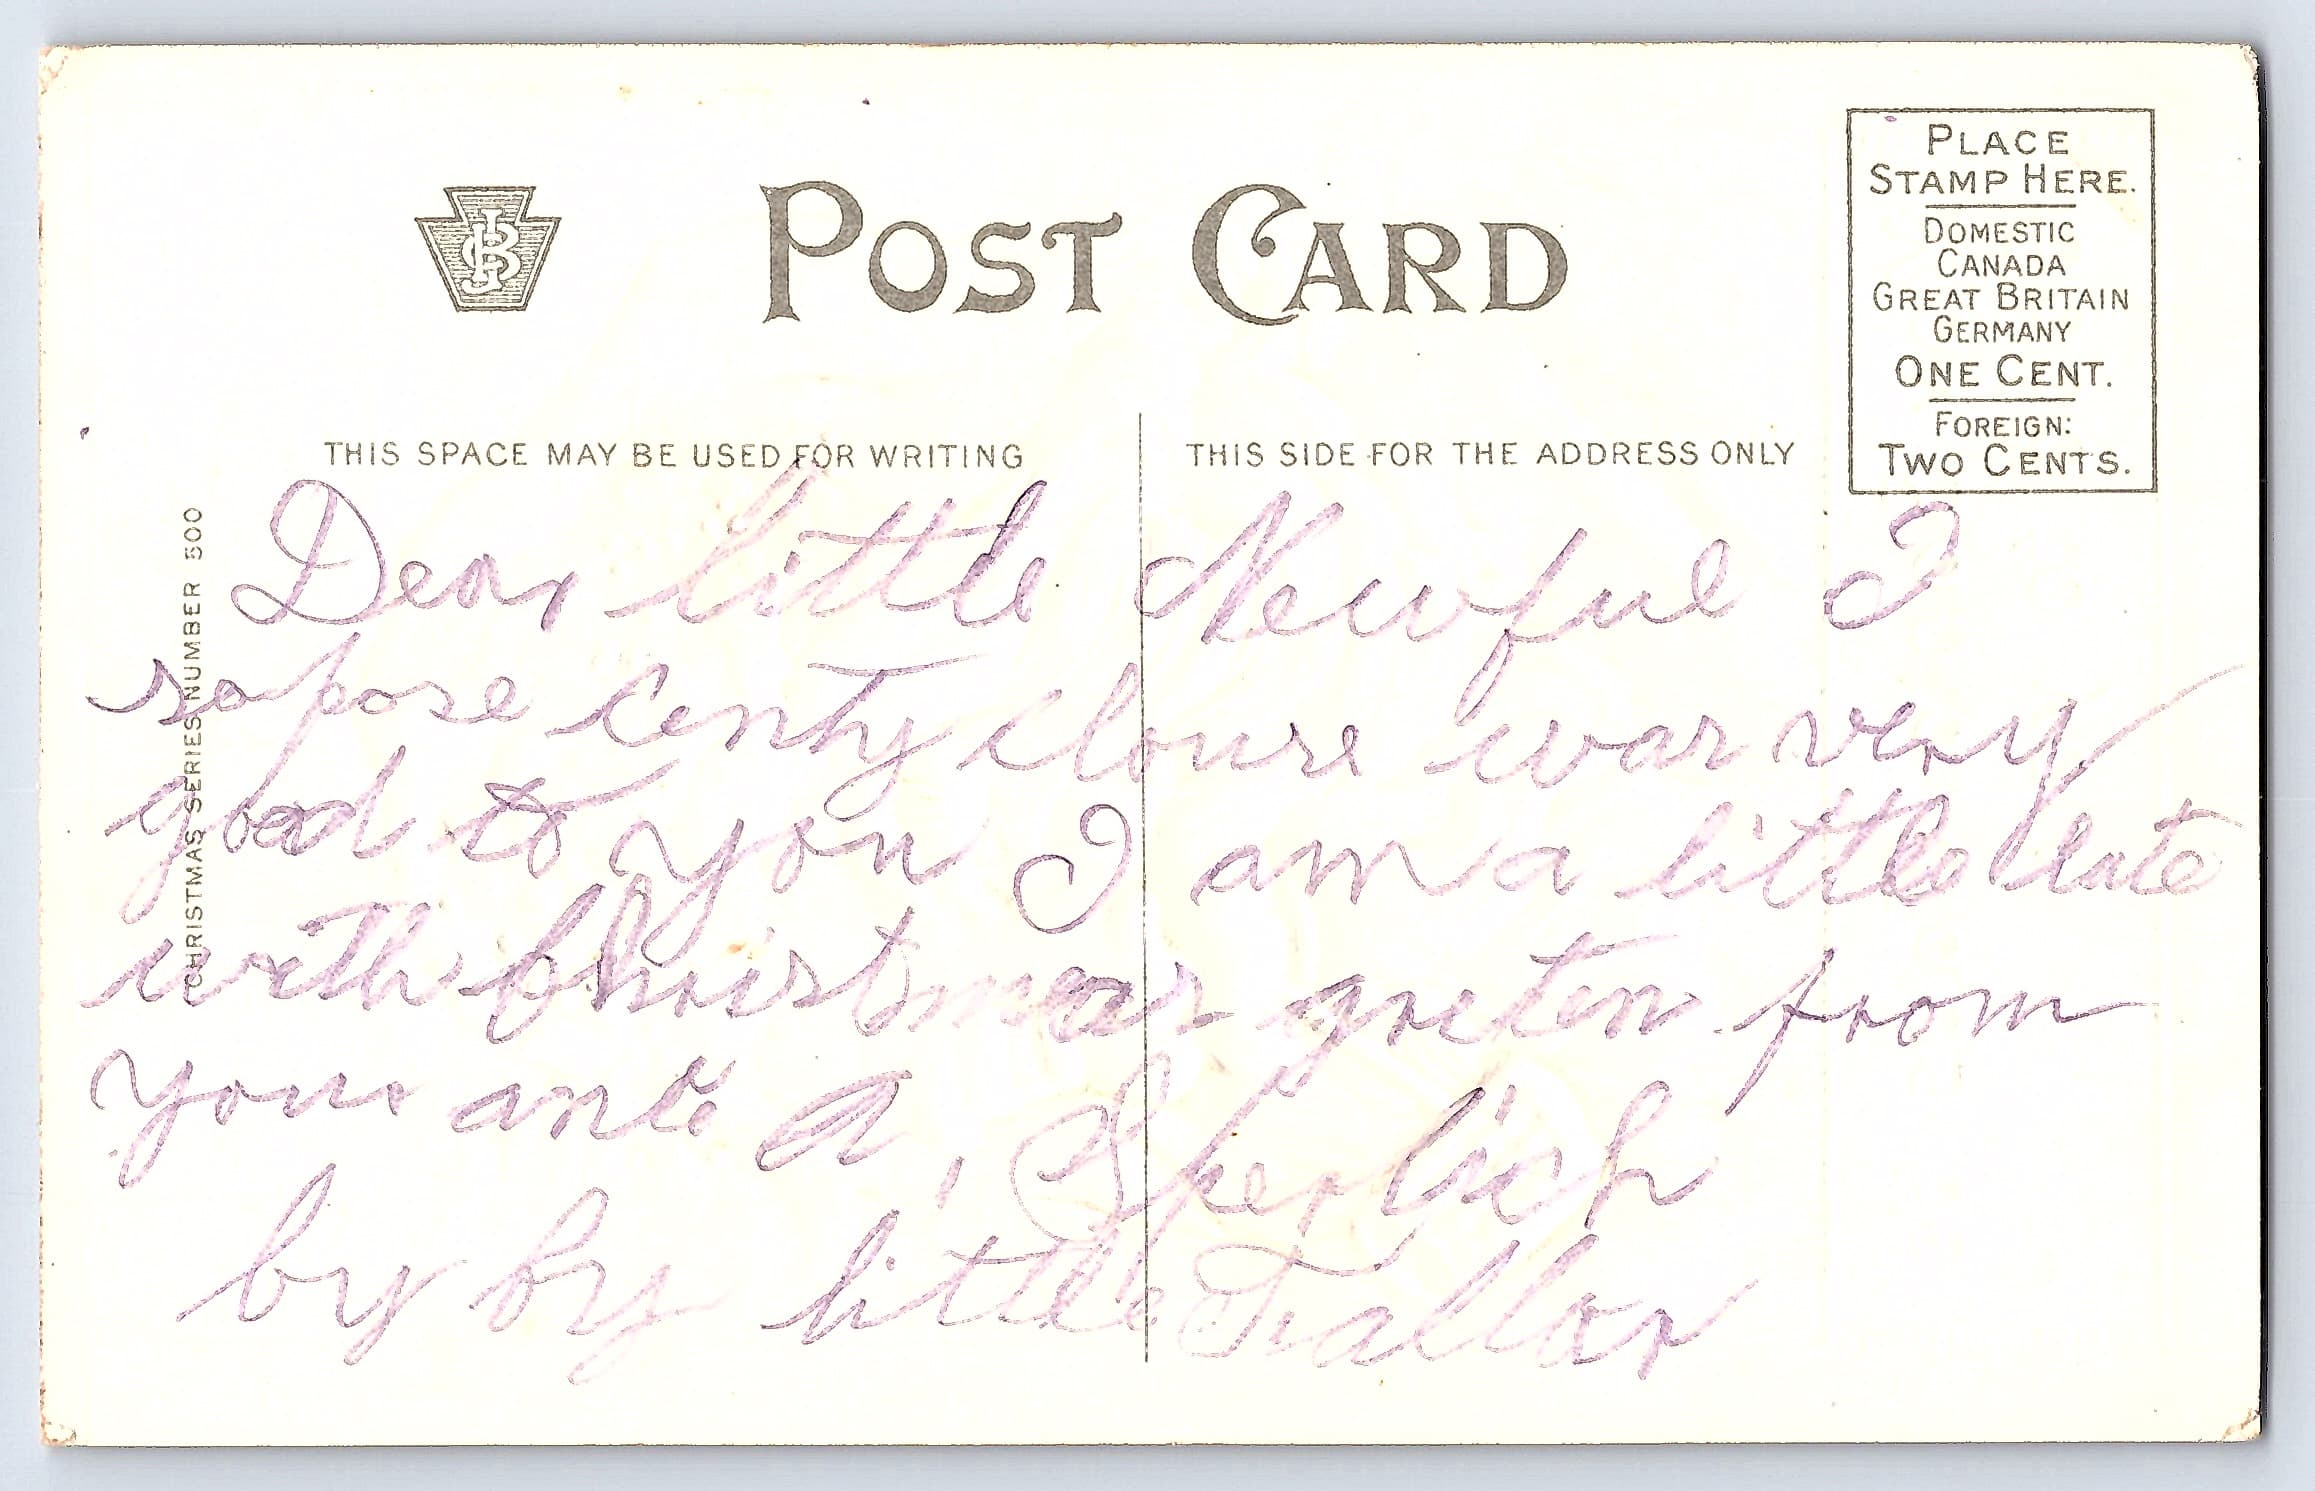 PLACE
STAMP HERE.
DOMESTIC
CANADA
GREAT BRITAIN
GERMANY
ONE CENT.
FOREIGN:
TWO CENTS.
JIB
POST CARD
THIS SPACE MAY BE USED FOR WRITING
THIS SIDE FOR THE ADDRESS ONLY
CHRISTMAS SERIES NUMBER 500
Dear little I
sopose was very
good to you I am a little late
with Christmas greten from
your ante A,
by by little